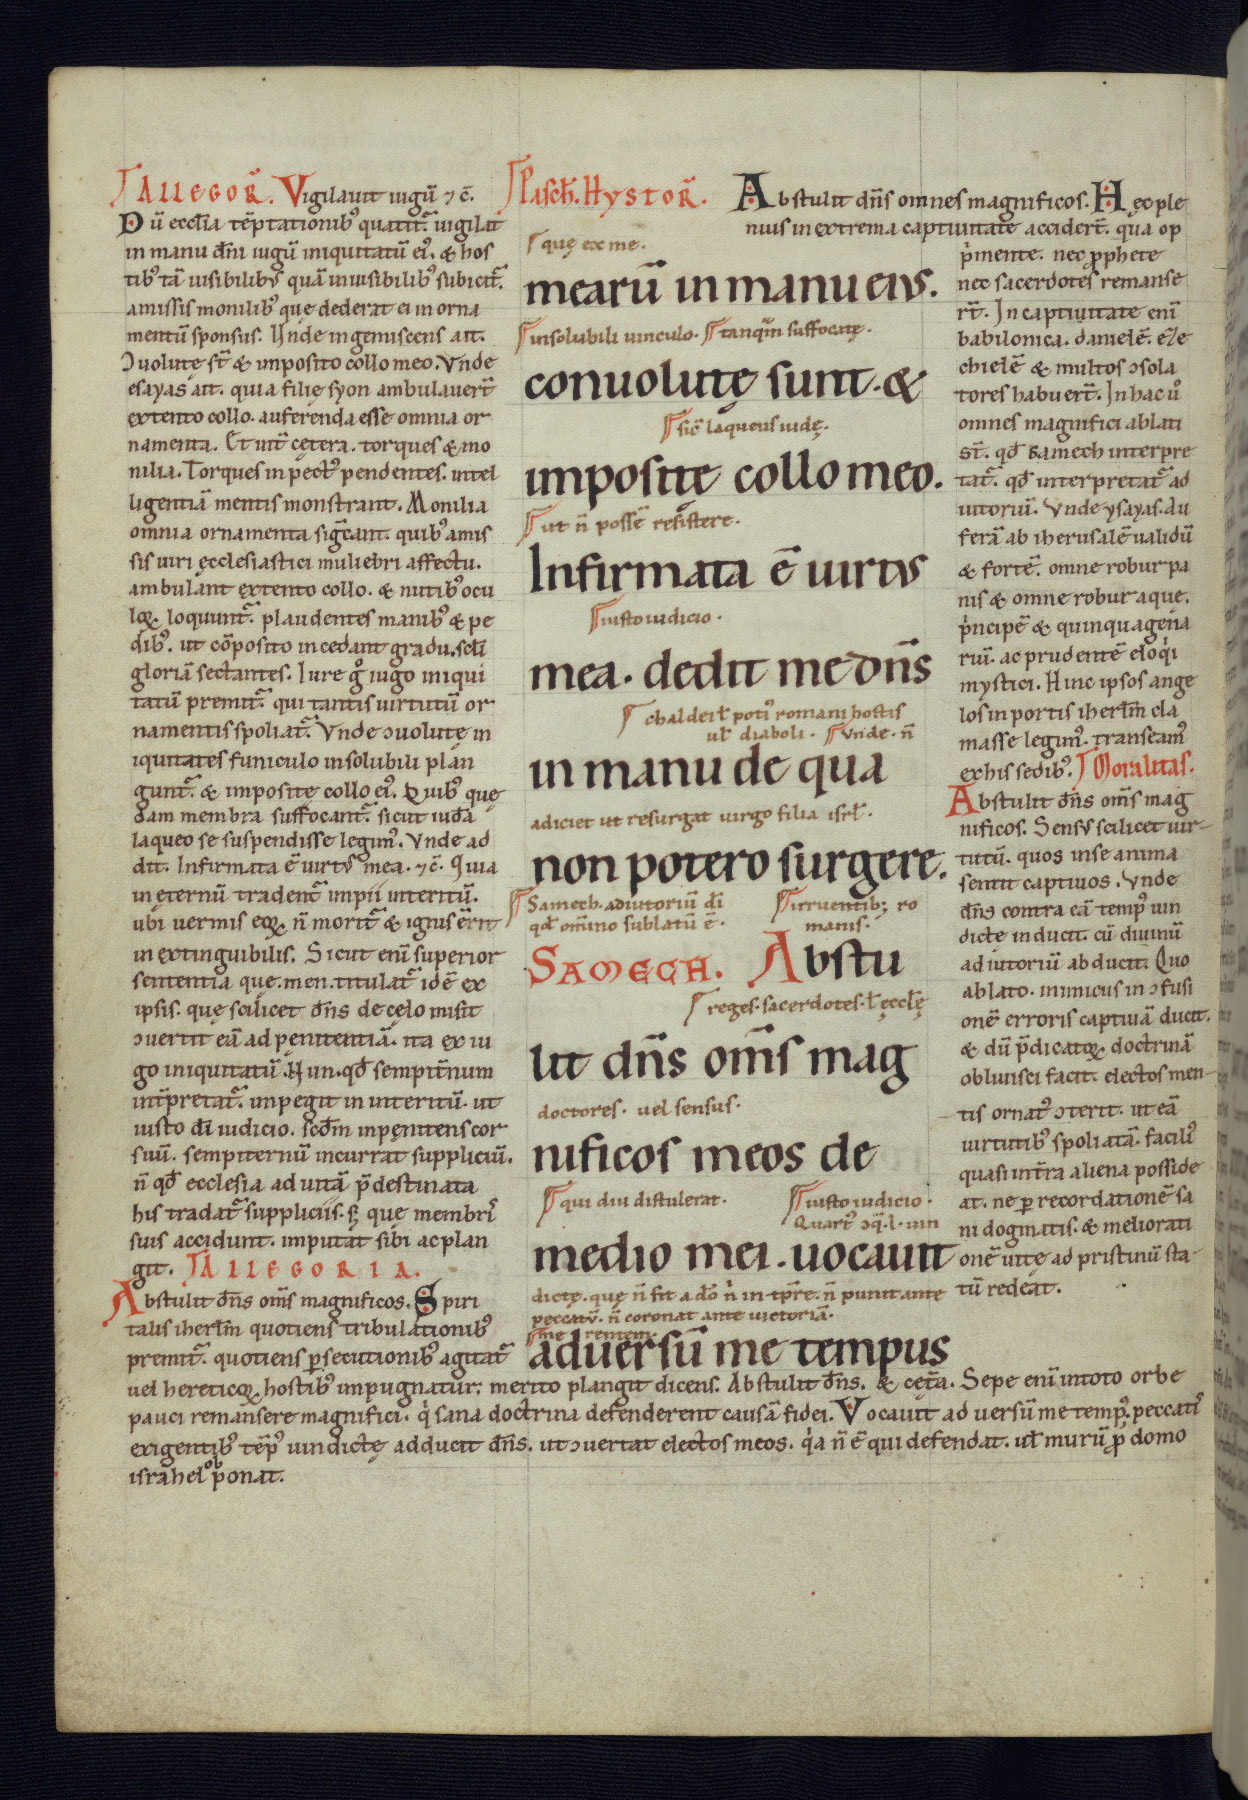 Allegor̄. Vigilauit iugū ⁊ c̄.
Dū eccl̄ia tēptationibꝰ quatit᷑. uigilat
in manu dn̄i iugū iniquitatū eiꝰ. & hos
tibꝰ tā uisibilibꝰ quā inuisibilibꝰ subicit᷑.
amissis monilibꝰ que dederat ei in orna
mentū sponsus. Vnde ingemiscens ait.
Ↄuolutę st̄ & imposito collo meo. Vnde
esayas ait. quia filię syon ambulauer̄t
extento collo. auferenda esse omnia or
namenta. Et int̄ cętera. torques & mo
nilia. Torques in pectꝰ pendentes. intel
ligentiā mentis monstrant. Monilia
omnia ornamenta sigc̄ant. quibꝰ amis
sis uiri ęcclesiastici muliebri affectu.
ambulant extento collo. & nutibꝰ ocu
loꝝ. loquunt᷑. plaudentes manibꝰ & pe
dibꝰ. ut cōposito incedant gradu. scl̄i
gloriā sectantes. Iure gͦ iugo iniqui
tatū premit᷑. qui tantis uirtutū or
namentis spoliat᷑. Vnde ↄuolutę in
iquitates funiculo insolubili plan
gunt᷑. & impositę collo eiꝰ. Quibꝰ quę
dam membra suffocant᷑. sicut iuda
laqueo se suspendisse legimꝰ. Vnde ad
dit. Infirmata ē uirtꝰ mea. ⁊ c̄. Quia
in eternū tradent᷑ impii interitū.
ubi uermis eoꝝ. n̄ morit᷑ & ignis erit
inextinguibilis. Sicut enī superior
sententia que. men. titulat᷑ idē ex
ipsis. quę scilicet dn̄s de cęlo misit
ↄuertit eā ad penitentiā. ita ex iu
go iniquitatū. Hun. qd̄ sempit̄num
int̄pretat᷑. inpegit in interitū. ut
iusto dī iudicio. scdm̄ inpęnitens cor
suū. sempiternū incurrat suppliciū.
n̄ qd̄ ecclesia ad uitā p̄destinata
his tradat᷑ suppliciis. sꝫ quę membrꝭ
suis accidunt. imputat sibi ac plan
git. Allegoria.
Abstulit dn̄s om̄s magnificos. Spiri
talis iherl̄m quotiens tribulationibꝰ
premit᷑. quotiens ꝑsecutionibꝰ agitat᷑
uel hereticoꝝ hostibꝰ impugnatur; merito plangit dicens. Abstulit dn̄s. & cęt̄a. Sepe enī in toto orbe
pauci remansere magnifici. qͥ sana doctrina defenderent causā fidei. Vocauit aduersū me tempꝰ. peccatꝭ
exigentibꝰ tēpꝰ uindictę adducit dn̄s. ut ↄuertat electos meos. qͥa n̄ ē qui defendat. ul̄ murū ꝓ domo
israhel oꝑponat.
Pasch̄. Hystor̄.
que ex me.
mearū in manu eiꝰ.
insolubili uinculo. tanqͣm suffocatę.
conuolutę sunt. &
sic̄ laqueus iudę.
imposite collo meo.
ut n̄ possē resistere.
Infirmata ē uirtꝰ
iusto iudicio.
mea. dedit me dn̄s
chaldei ul̄ potiꝰ romani hostis
ul̄ diaboli. Vnde. n̄
in manu de qua
adiciet ut resurgat uirgo filia isrl̄.
non potero surgere.
Samech. adiutoriū dī irruentibꝫ ro
qd̄ omīno sublatū ē. manis.
SAMECH. Abstu
reges. sacerdotes. l̄ ęccl̄ę
lit dn̄s om̄s mag
doctores. uel sensus.
nificos meos de
qui diu distulerat. iusto iudicio.
Quartꝰ ↄq̄. l. uin
medio mei. uocauit
dictę. quę n̄ fit a dō n̄ in tp̄re. n̄ punit ante
peccatū. n̄ coronat ante uictoriā.
aduersū me tempus
Abstulit dn̄s omnes magnificos. Hęc ple
nius in extrema captiuitate accider̄t. qua op
pͥmente. nec ꝓphete
nec sacerdotes remanse
rt̄. In captiuitate enī
babilonica. danielē. eze
chielē & multos ↄsola
tores habuer̄t. In hac ů
omnes magnifici ablati
st̄. qd̄ samech interpre
tat᷑. qd̄ interpretat᷑ ad
iutoriū. Vnde ysayas. Au
ferā ab iherusalē ualidū
& fortē. omne robur pa
nis & omne robur aquę.
pͥncipē & quinquagena
riū. ac prudentē eloqͥi
mystici. Hinc ipsos ange
los in portis iherl̄m cla
masse legimꝰ. transeamꝰ
ex his sedibꝰ. Moralitas.
Abstulit dn̄s om̄s mag
nificos. Sensꝰ scilicet uir
tutū. quos in se anima
sentit captiuos. Vnde
dn̄s contra eā tempꝰ uin
dicte inducit. cū diuinū
adiutoriū abducit. Quo
ablato. inimicus in ↄfusi
onē erroris captiuā ducit.
& dū p̄dicatoꝝ doctrinā
obliuisci facit. electos men
tis ornatꝰ ↄterit. ut eā
uirtutibꝰ spoliatā. faciliꝰ
quasi int̄ra aliena posside
at. ne ꝑ recordationē sa
ni dogmatis. & meliorati
onē uitę ad pristinū sta
tū redeat.